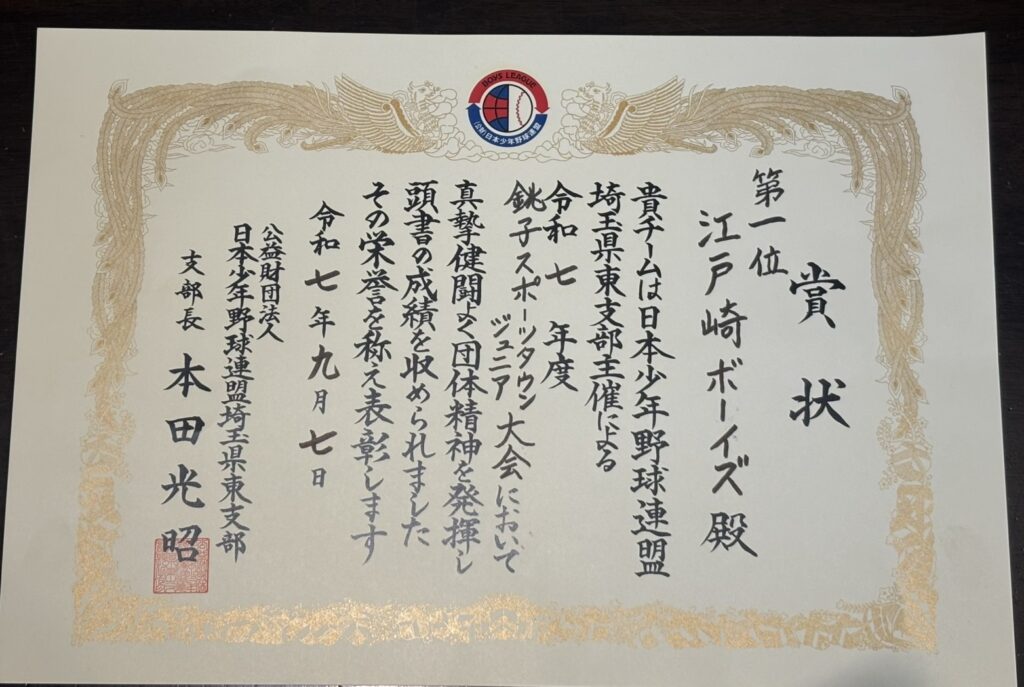 BOYS LEAGUE
(公財)日本少年野球連盟
賞状
第一位
江戸崎ボーイズ殿
貴チームは日本少年野球連盟
埼玉県東支部主催による
令和七年度
銚子スポーツタウン
ジュニア大会において
真摯健闘よく団体精神を発揮し
頭書の成績を収められました
その栄誉を称え表彰します
令和七年九月七日
公益財団法人
日本少年野球連盟埼玉県東支部
支部長 本田光昭